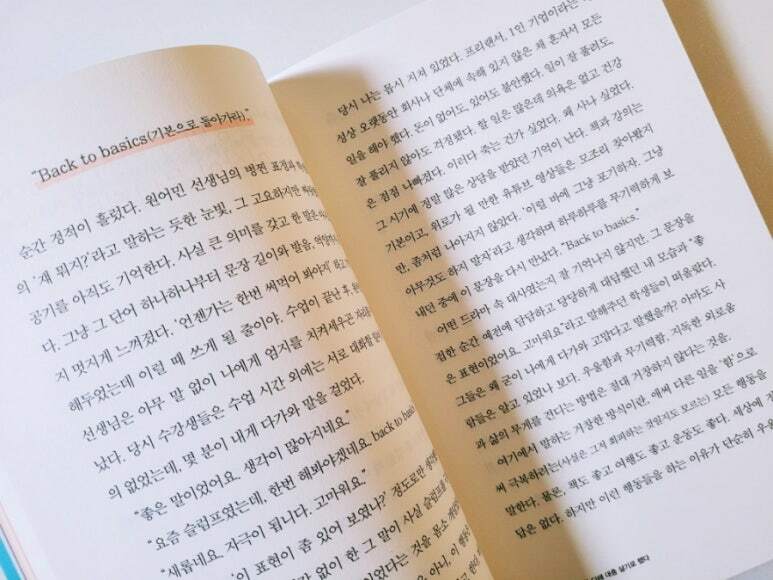 "Back to basics(기본으로 돌아가라)."
순간 정적이 흘렀다. 원어민 선생님의 벙찐 표정과
의 '쟤 뭐지?'라고 말하는 듯한 눈빛, 그 고요하지만
공기를 아직도 기억한다. 사실 큰 의미를 갖고 한 말은
다. 그냥 그 단어 하나하나부터 문장 길이와 발음,
지 멋지게 느껴졌다. '언젠가는 한번 써먹어 봐야지' 하고
해두었는데 이럴 때 쓰게 될 줄이야. 수업이 끝난 후
선생님은 아무 말 없이 나에게 엄지를 치켜세우곤
났다. 당시 수강생들은 수업 시간 외에는 서로 대화를
의 없었는데, 몇 분이 내게 다가와 말을 걸었다.
"좋은 말이었어요. 생각이 많아지네요."
"요즘 슬럼프였는데, 한번 해봐야겠네요. back to basic
"새롭네요. 자극이 됩니다. 고마워요."
'이 표현이 좀 있어 보였나?' 정도로만
각 없이 한 그 말이 사실 슬럼프를
었다는 것을 몸소
아니, 이
당시 나는 몹시 지쳐 있었다. 프리랜서, 1인 기업이라는
성상 오랫동안 회사나 단체에 속해 있지 않은 채 혼자서 모든
일을 해야 했다. 돈이 없어도, 있어도 불안했다. 일이 잘 풀려도,
잘 풀리지 않아도 걱정됐다. 할 일은 많은데 의욕은 없고 건강
은 점점 나빠졌다. 이러다 죽는 건가 싶었다. 왜 사나 싶었다.
그 시기에 정말 많은 상담을 받았던 기억이 난다. 책과 강의는
기본이고, 위로가 될 만한 유튜브 영상들은 모조리 찾아봤지
만, 좀처럼 나아지지 않았다. '이럴 바에 그냥 포기하자. 그냥
아무것도 하지 말자'라고 생각하며 하루하루를 무기력하게 보
내던 중에 이 문장을 다시 만났다. "Back to basics."
어떤 드라마 속 대사였는지 잘 기억나지 않지만, 그 문장을
접한 순간 예전에 담담하고 당당하게 대답했던 내 모습과 "좋
은 표현이었어요. 고마워요"라고 말해주던 학생들이 떠올랐다.
그들은 왜 굳이 나에게 다가와 고맙다고 말했을까? 아마도 사
람들은 알고 있었나 보다. 우울함과 무기력함, 지독한 외로움
과 삶의 무게를 견디는 방법은 절대 거창하지 않다는 것을.
여기에서 말하는 거창한 방식이란, 애써 다른 일을 '함'으로
써 극복하려는(사실은 그저 회피하는 것일지도 모르는) 모든 행동을
말한다. 물론, 책도 좋고 여행도 좋고 운동도 좋다. 세상에 정
답은 없다. 하지만 이런 행동들을 하는 이유가 단순히 우울
대충 살기로 했다